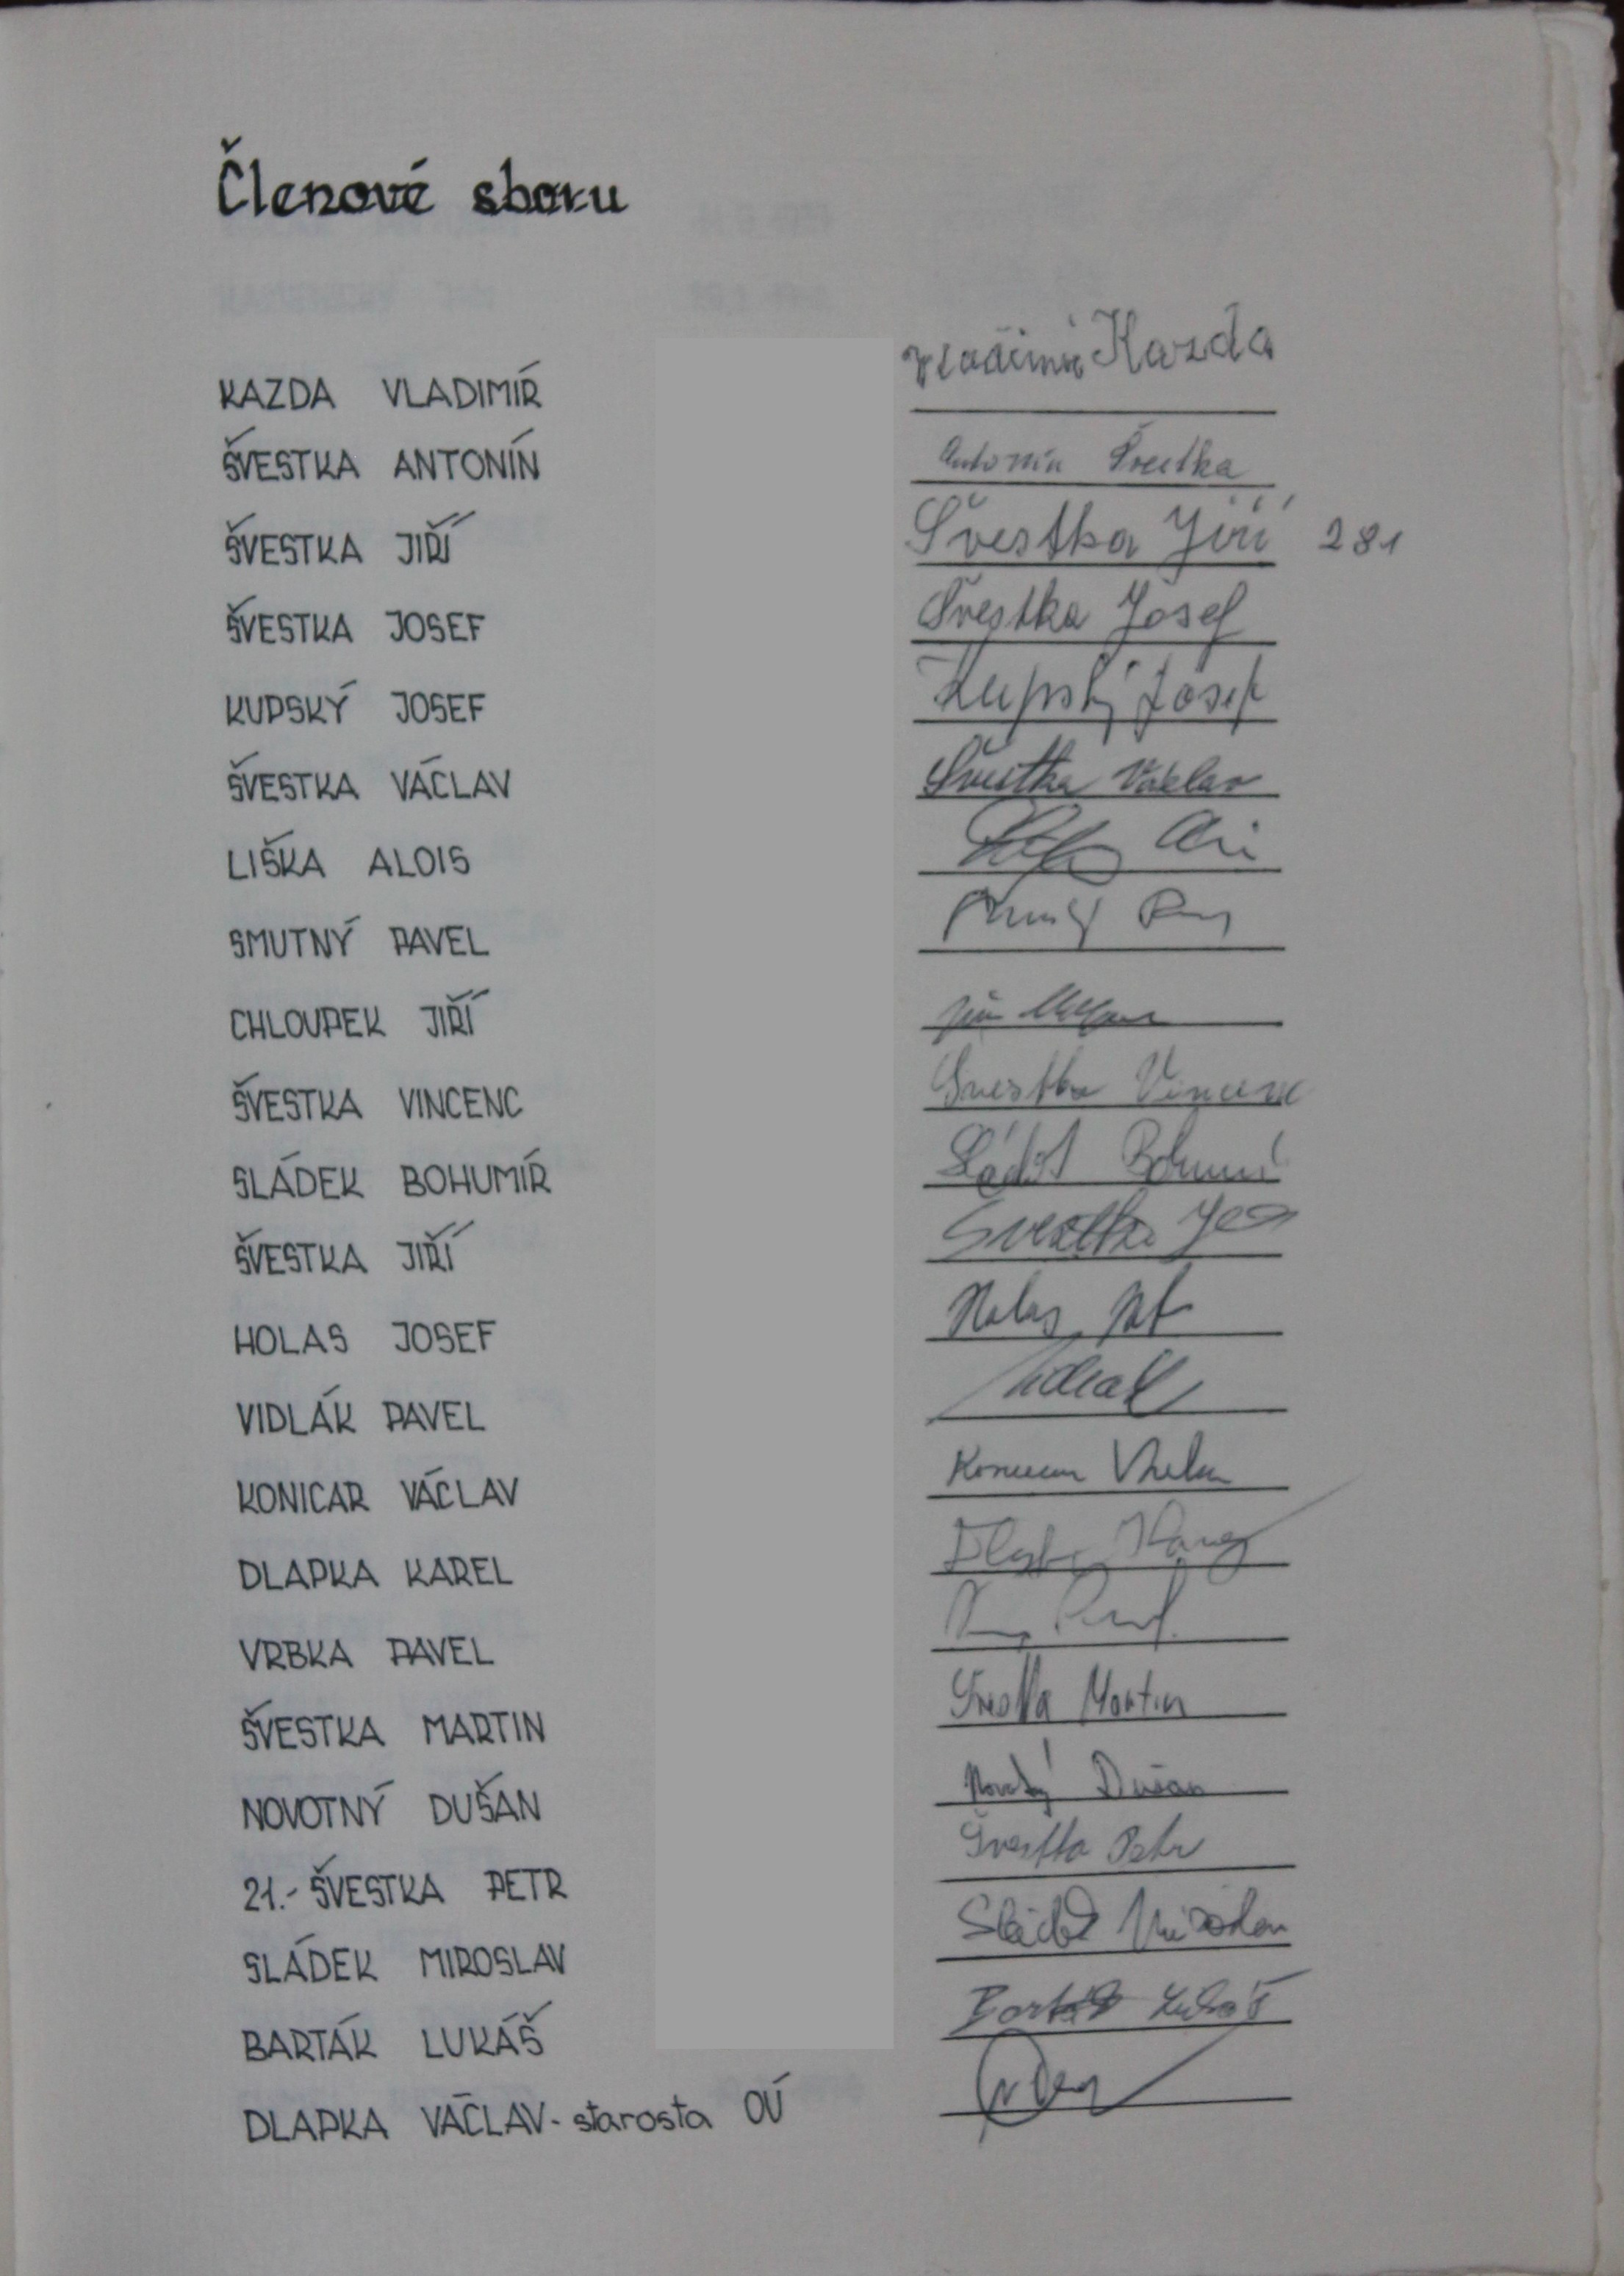 Členové sboru
KAZDA VLADIMÍR Vladimír Kazda
ŠVESTKA ANTONÍN Antonín Švestka
ŠVESTKA JIŘÍ Švestka Jiří 281
ŠVESTKA JOSEF Švestka Josef
KUPSKÝ JOSEF Kupský Josef
ŠVESTKA VÁCLAV Švestka Václav
LIŠKA ALOIS
SMUTNÝ PAVEL
CHLOUPEK JIŘÍ
ŠVESTKA VINCENC Švestka Vincenc
SLÁDEK BOHUMÍR Sládek
ŠVESTKA JIŘÍ Švestka
HOLAS JOSEF Holas
VIDLÁK PAVEL
KONICAR VÁCLAV
DLAPKA KAREL
VRBKA PAVEL
ŠVESTKA MARTIN Švestka Martin
NOVOTNÝ DUŠAN Novotný Dušan
21.- ŠVESTKA PETR Švestka Petr
SLÁDEK MIROSLAV Sládek Miroslav
BARTÁK LUKÁŠ Barták Lukáš
DLAPKA VÁCLAV - starosta OÚ